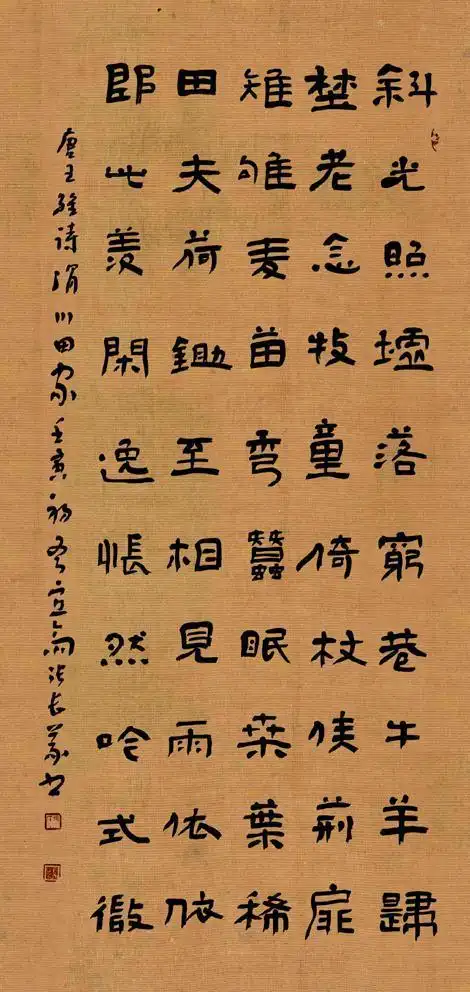 斜光照墟落窮巷牛羊歸
埜老念牧童倚杖候荊扉
雉雊麦苗秀蠶眠桑葉稀
田夫荷鋤至相見雨依依
即此羨閑逸悵然吟式微
唐王維詩渭川田家壬寅初冬張長書